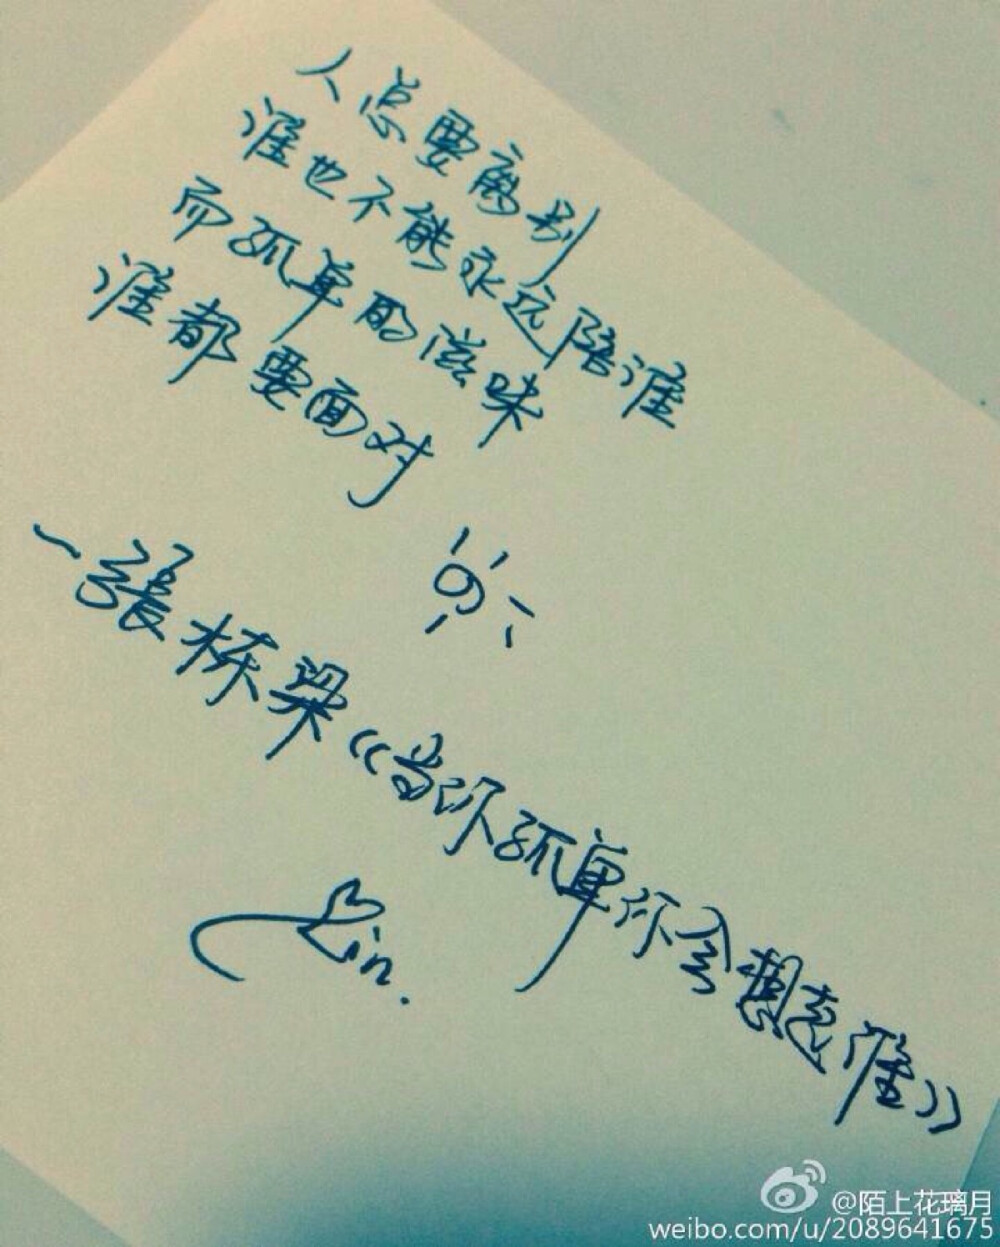 人总要离别
谁也不能永远陪谁
而孤单的滋味
谁都要面对
—張栋梁《当你孤单你会想起谁》
Lin.
@陌上花璃月
weibo.com/u/2089641675